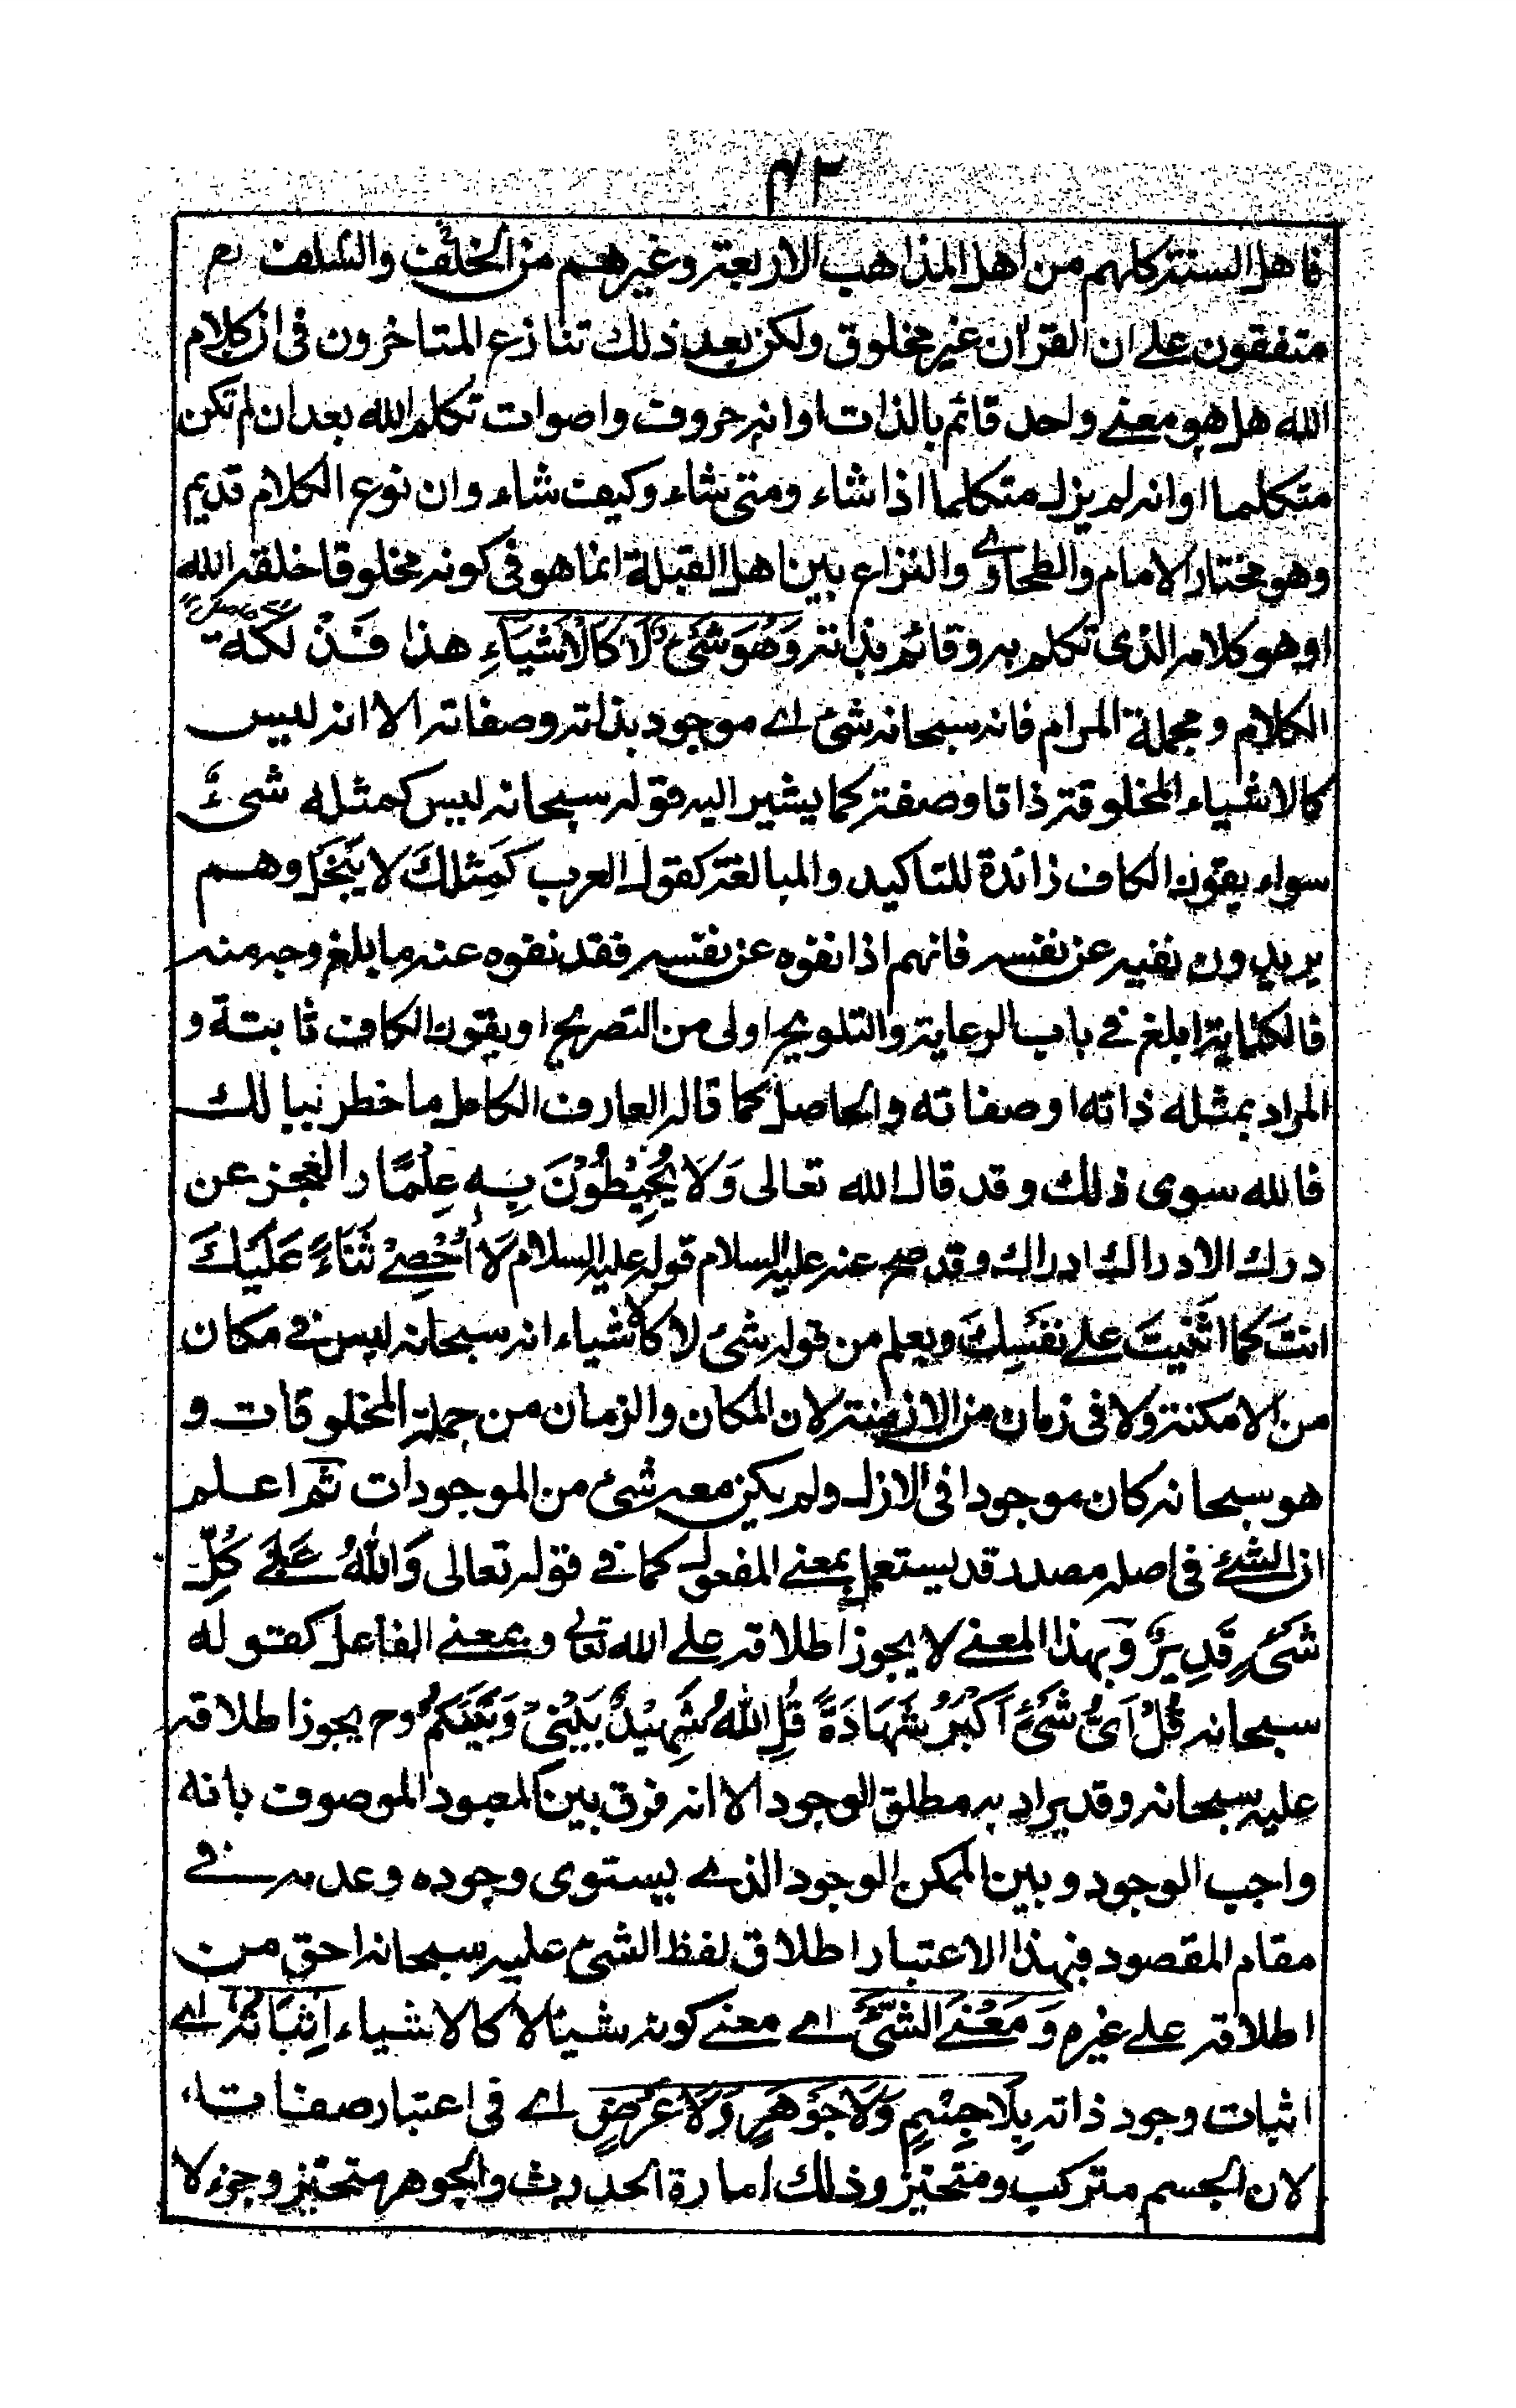 ٤٢
فاهل السنة كلهم من اهل المذاهب الاربعة وغيرهم من الخلف والسلف
متفقون على ان القران غير مخلوق ولكن بعد ذلك تنازع المتاخرون فى ان كلام
الله هل هو معنى واحد قائم بالذات او انه حروف واصوات تكلم الله بعد ان لم تكن
متكلما او انه لم يزل متكلما اذا شاء ومتى شاء وكيف شاء وان نوع الكلام قديم
وهو مختار الامام والطحاوى والنزاع بين اهل القبلة انما هو فى كونه مخلوقا خلقه الله
او هو كلامه الذى تكلم به وقائم بذاته وَهُوَ شَىْءٌ لَا كَالْاَشْيَاءِ هذا فَذْلَكَة
الكلام ومجملة المرام فانه سبحانه شئ اے موجود بذاته وصفاته الا انه ليس
كالاشياء المخلوقة ذاتا وصفة كما يشير اليه قوله سبحانه ليس كمثله شىءٌ
سواء يقون الكاف زائدة للتاكيد والمبالغة كقول العرب كَمَثلكَ لا يَبْخَل وهم
يريدون نفيه عن نفسه فانهم اذا نفوه عن نفسه فقد نفوه عنه ما بلغ وجه منه
فالكناية ابلغ فے باب الرعاية والتلويح اولى من التصريح او يقون الكاف ثابتة و
المراد بمثله ذاته او صفاته والحاصل كما قاله العارف الكامل ما خطر ببالك
فالله سوى ذلك وقد قال الله تعالى وَلَا يُحِيْطُوْنَ بِهٖ عِلْمًا ر العجز عن
درك الادراك ادراك وقد صح عنه عليه السلام قوله عليه السلام لَا اُحْصِے ثَنَاءً عَلَيْكَ
انتَ كما اثنَيتَ علے نفَسِكَ ويعلم من قوله شئ لا كالاشياء انه سبحانه ليس فے مكان
من الامكنة ولا فى زمان من الازمنة لان المكان والزمان من جملة المخلوقات و
هو سبحانه كان موجودا فى الازل ولم يكن معه شئ من الموجودات ثم اعلم
ان الشئ فى اصله مصدر قد يستعمل بمعنے المفعول كما فے قوله تعالى وَاللهُ عَلٰے كُلِّ
شَىْءٍ قَدِيرٌ وبهذا المعنے لا يجوز اطلاقه علے الله تعالى وبمعنے الفاعل كقوله
سبحانه قُلْ اَىُّ شَىْءٍ اَكْبَرُ شَهَادَةً قُلِ اللهُ شَهِيْدٌ بَيْنِىْ وَبَيْنَكُمْ وح يجوز اطلاقه
عليه سبحانه وقد يراد به مطلق الوجود الا انه فرق بين المعبود الموصوف بانه
واجب الوجود وبين الممكن الوجود الذے يستوى وجوده وعدمه فے
مقام المقصود فبهذا الاعتبار اطلاق لفظ الشئ عليه سبحانه احق من
اطلاقه علے غيره وَمَعْنَے الشَّىْءِ اے معنے كونه شيئا لا كالاشياء اِثْبَاتُهٗ اے
اثبات وجود ذاته بِلَا جِسْمٍ وَلَا جَوْهَرٍ وَلَا عَرَضٍ اے فى اعتبار صفاته
لان الجسم متركب ومتحيز وذلك امارة الحدوث والجوهر متحيز وجزء لا